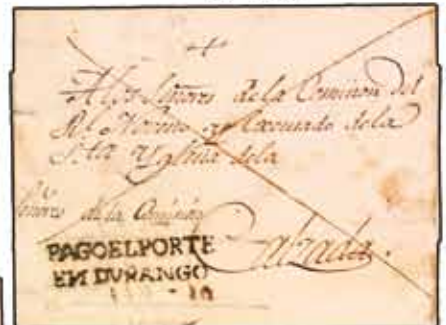 +
A los Señores de la Comision del
Rl Noveno y Excusado de la
Sta Yglesia de la
Señores de la Comision
Calzada.
PAGOELPORTE
EN DURANGO